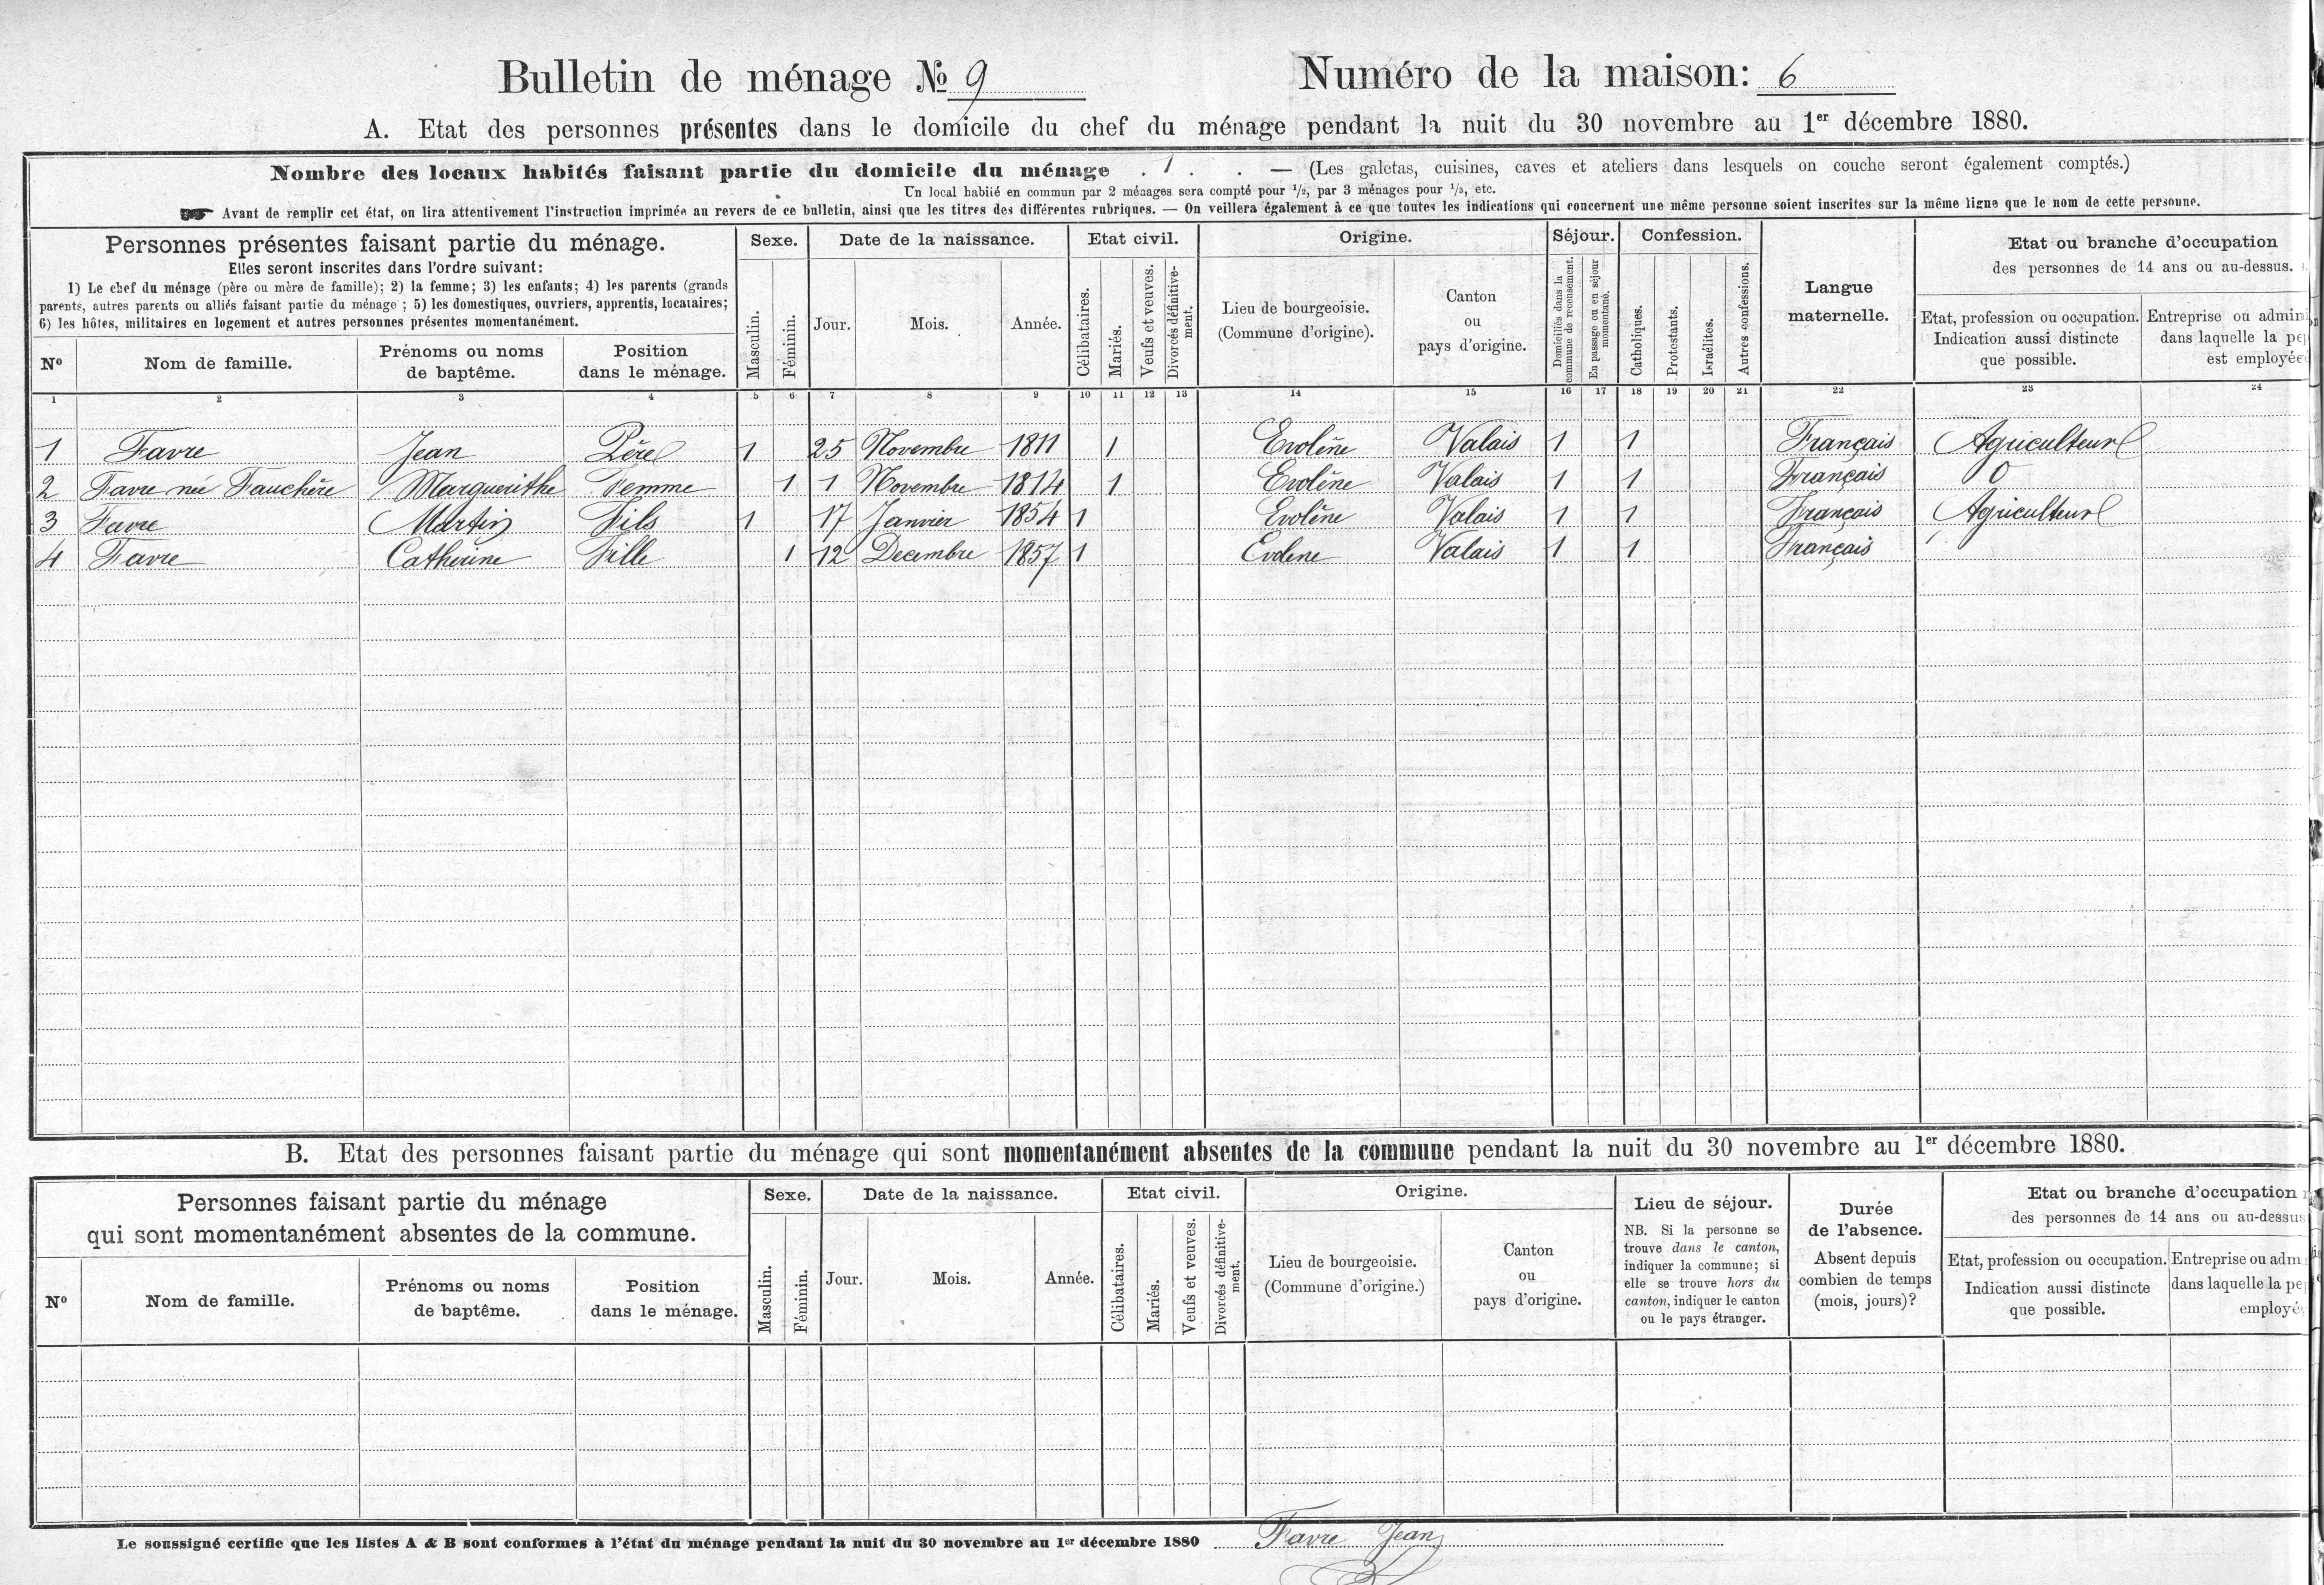 Bulletin de ménage № 9 Numéro de la maison: 6
A. Etat des personnes présentes dans le domicile du chef du ménage pendant la nuit du 30 novembre au 1er décembre 1880.
Nombre des locaux habités faisant partie du domicile du ménage . 1 . . — (Les galetas, cuisines, caves et ateliers dans lesquels on couche seront également comptés.)
Un local habité en commun par 2 ménages sera compté pour 1/2, par 3 ménages pour 1/3, etc.
Avant de remplir cet état, on lira attentivement l'instruction imprimée au revers de ce bulletin, ainsi que les titres des différentes rubriques. — On veillera également à ce que toutes les indications qui concernent une même personne soient inscrites sur la même ligne que le nom de cette personne.
Personnes présentes faisant partie du ménage.
Elles seront inscrites dans l'ordre suivant:
1) Le chef du ménage (père ou mère de famille); 2) la femme; 3) les enfants; 4) les parents (grands
parents, autres parents ou alliés faisant partie du ménage ; 5) les domestiques, ouvriers, apprentis, locataires;
6) les hôtes, militaires en logement et autres personnes présentes momentanément.
Nº
Nom de famille.
Prénoms ou noms
de baptême.
Position
dans le ménage.
Sexe.
Masculin.
Féminin.
Date de la naissance.
Jour.
Mois.
Année.
Etat civil.
Célibataires.
Mariés.
Veufs et veuves.
Divorcés définitive-
ment.
Origine.
Lieu de bourgeoisie.
(Commune d'origine).
Canton
ou
pays d'origine.
Séjour.
Domiciliés dans la
commune de recensement.
En passage ou en séjour
momentané.
Confession.
Catholiques.
Protestants.
Israélites.
Autres confessions.
Langue
maternelle.
Etat ou branche d'occupation
des personnes de 14 ans ou au-dessus.
Etat, profession ou occupation.
Indication aussi distincte
que possible.
Entreprise ou admin
dans laquelle la pe
est employée
1 2 3 4 5 6 7 8 9 10 11 12 13 14 15 16 17 18 19 20 21 22 23 24
1 Favre Jean Père 1 25 Novembre 1811 1 Evolène Valais 1 1 Français Agriculteur
2 Favre née Fauchère Marguerithe Femme 1 1 Novembre 1814 1 Evolène Valais 1 1 Français 0
3 Favre Martin Fils 1 17 Janvier 1854 1 Evolène Valais 1 1 Français Agriculteur
4 Favre Catherine Fille 1 12 Decembre 1857 1 Evolene Valais 1 1 Français
B. Etat des personnes faisant partie du ménage qui sont momentanément absentes de la commune pendant la nuit du 30 novembre au 1er décembre 1880.
Personnes faisant partie du ménage
qui sont momentanément absentes de la commune.
Nº
Nom de famille.
Prénoms ou noms
de baptême.
Position
dans le ménage.
Sexe.
Masculin.
Féminin.
Date de la naissance.
Jour.
Mois.
Année.
Etat civil.
Célibataires.
Mariés.
Veufs et veuves.
Divorcés définitive-
ment.
Origine.
Lieu de bourgeoisie.
(Commune d'origine.)
Canton
ou
pays d'origine.
Lieu de séjour.
NB. Si la personne se
trouve dans le canton,
indiquer la commune; si
elle se trouve hors du
canton, indiquer le canton
ou le pays étranger.
Durée
de l'absence.
Absent depuis
combien de temps
(mois, jours)?
Etat ou branche d'occupation
des personnes de 14 ans ou au-dessus
Etat, profession ou occupation.
Indication aussi distincte
que possible.
Entreprise ou adm
dans laquelle la pe
employé
Le soussigné certifie que les listes A & B sont conformes à l'état du ménage pendant la nuit du 30 novembre au 1er décembre 1880 Favre Jean